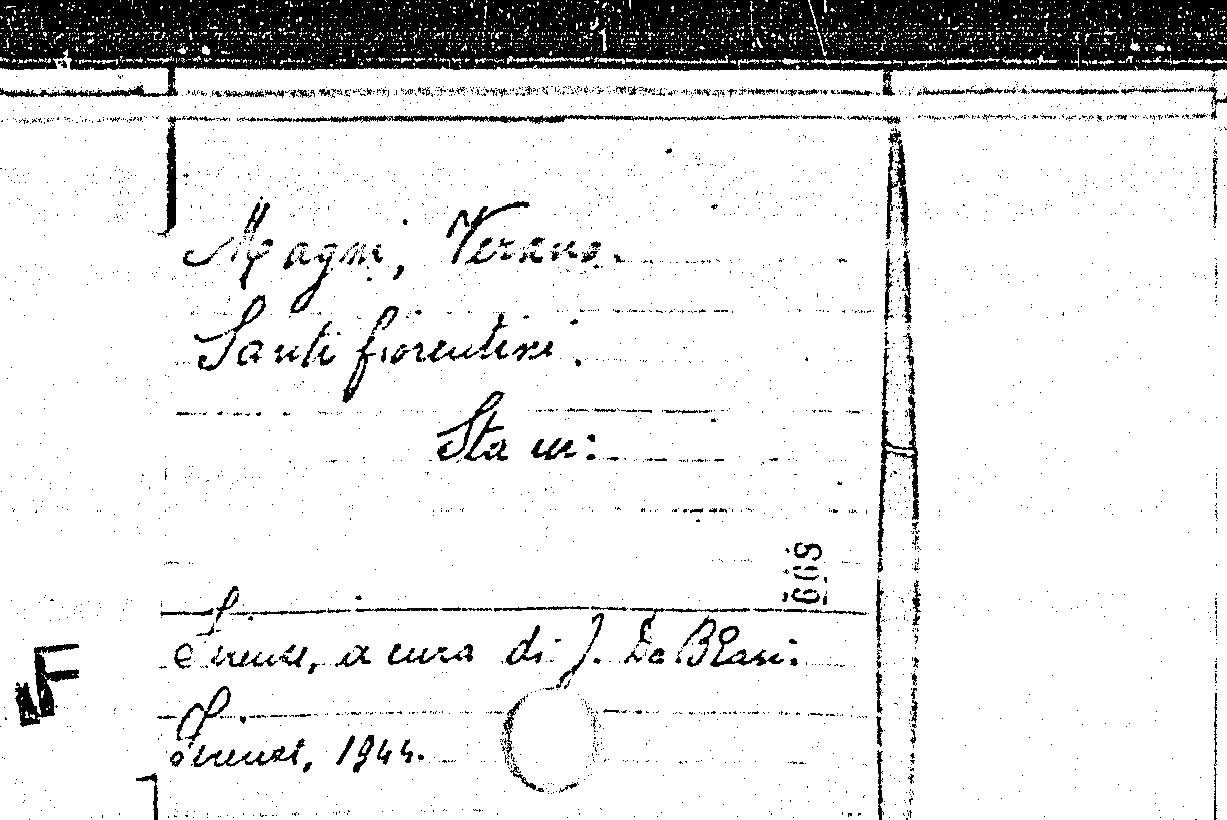 Magni, Verano.
Santi fiorentini.
Sta in:
609
Firenze, a cura di J. De Blasi.
Firenze, 1944.
F